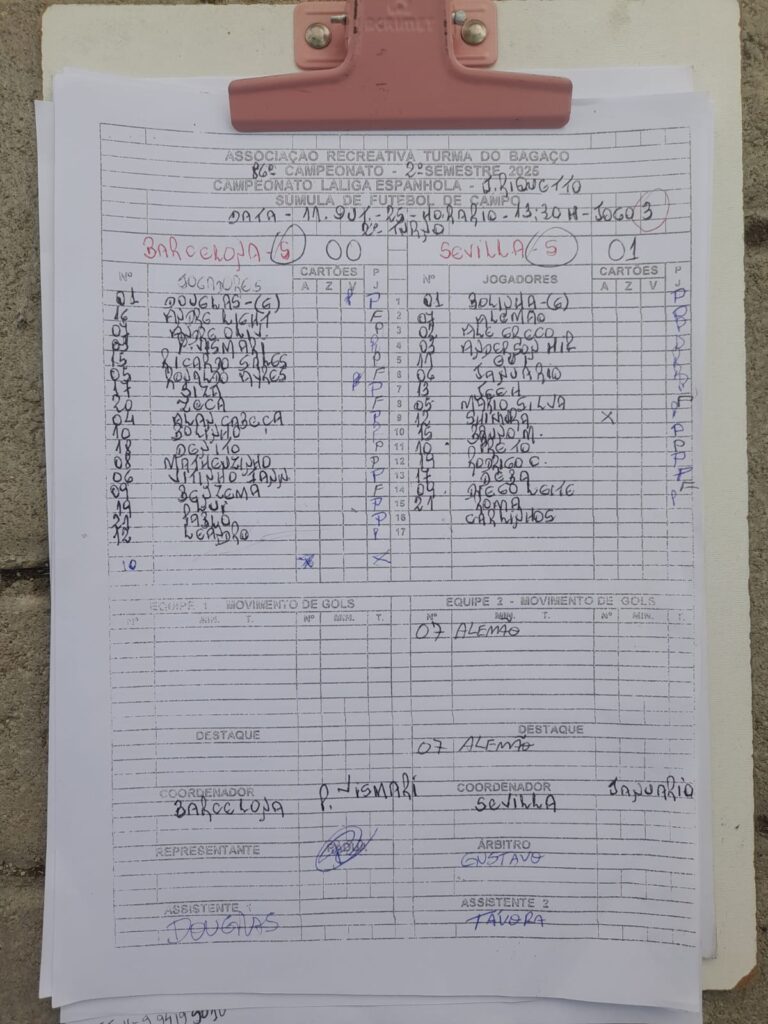 ASSOCIAÇÃO RECREATIVA TURMA DO BAGAÇO
86º CAMPEONATO - 2º SEMESTRE 2025
CAMPEONATO LALIGA ESPANHOLA - J. RIQUETTO
SUMULA DE FUTEBOL DE CAMPO
DATA - 11. OUT. - 25 - HORARIO - 13:30 H - JOGO 3
2º TURNO
BARCELONA - 5 00 SEVILLA - 5 01
Nº JOGADORES CARTÕES P Nº JOGADORES CARTÕES P
A Z V J A Z V J
01 DOUGLAS - (G) P 1 01 BOLINHA - (G) P
16 ANDRE LIGHT F 2 07 ALEMÃO
07 ANDRE OLIV. P 3 02 ALE GRECO
03 P. VISMARI 4 03 ANDERSON MIR
15 RICARDO SALES P 5 11 GUI
05 RONALDO AYRES F 6 06 JANUARIO
17 SIZA P 7 13 JEEH
20 ZECA F 8 05 MARIO SILVA
04 ALAN CABEÇA 9 12 SHIMODA X
10 BOLINHO 10 15 BANJO M.
18 DENITO P 11 10 PRETO P
08 MATHEUZINHO P 12 19 RODRIGO C. P
06 VITINHO JANN P 13 17 DEBA
09 BENZEMA F 14 09 DIEGO LEITE
19 P 15 21 ROMA
21 PABLO P 16 CARLINHOS
12 LEANDRO 17
10 X
EQUIPE 1 MOVIMENTO DE GOLS EQUIPE 2 - MOVIMENTO DE GOLS
Nº MIN. T. Nº MIN. T. Nº MIN. T. Nº MIN. T.
07 ALEMÃO
DESTAQUE DESTAQUE
07 ALEMÃO
COORDENADOR P. VISMARI COORDENADOR JANUARIO
BARCELONA SEVILLA
REPRESENTANTE ARBITRO
GUSTAVO
ASSISTENTE 1 ASSISTENTE 2
DOUGLAS TAVORA